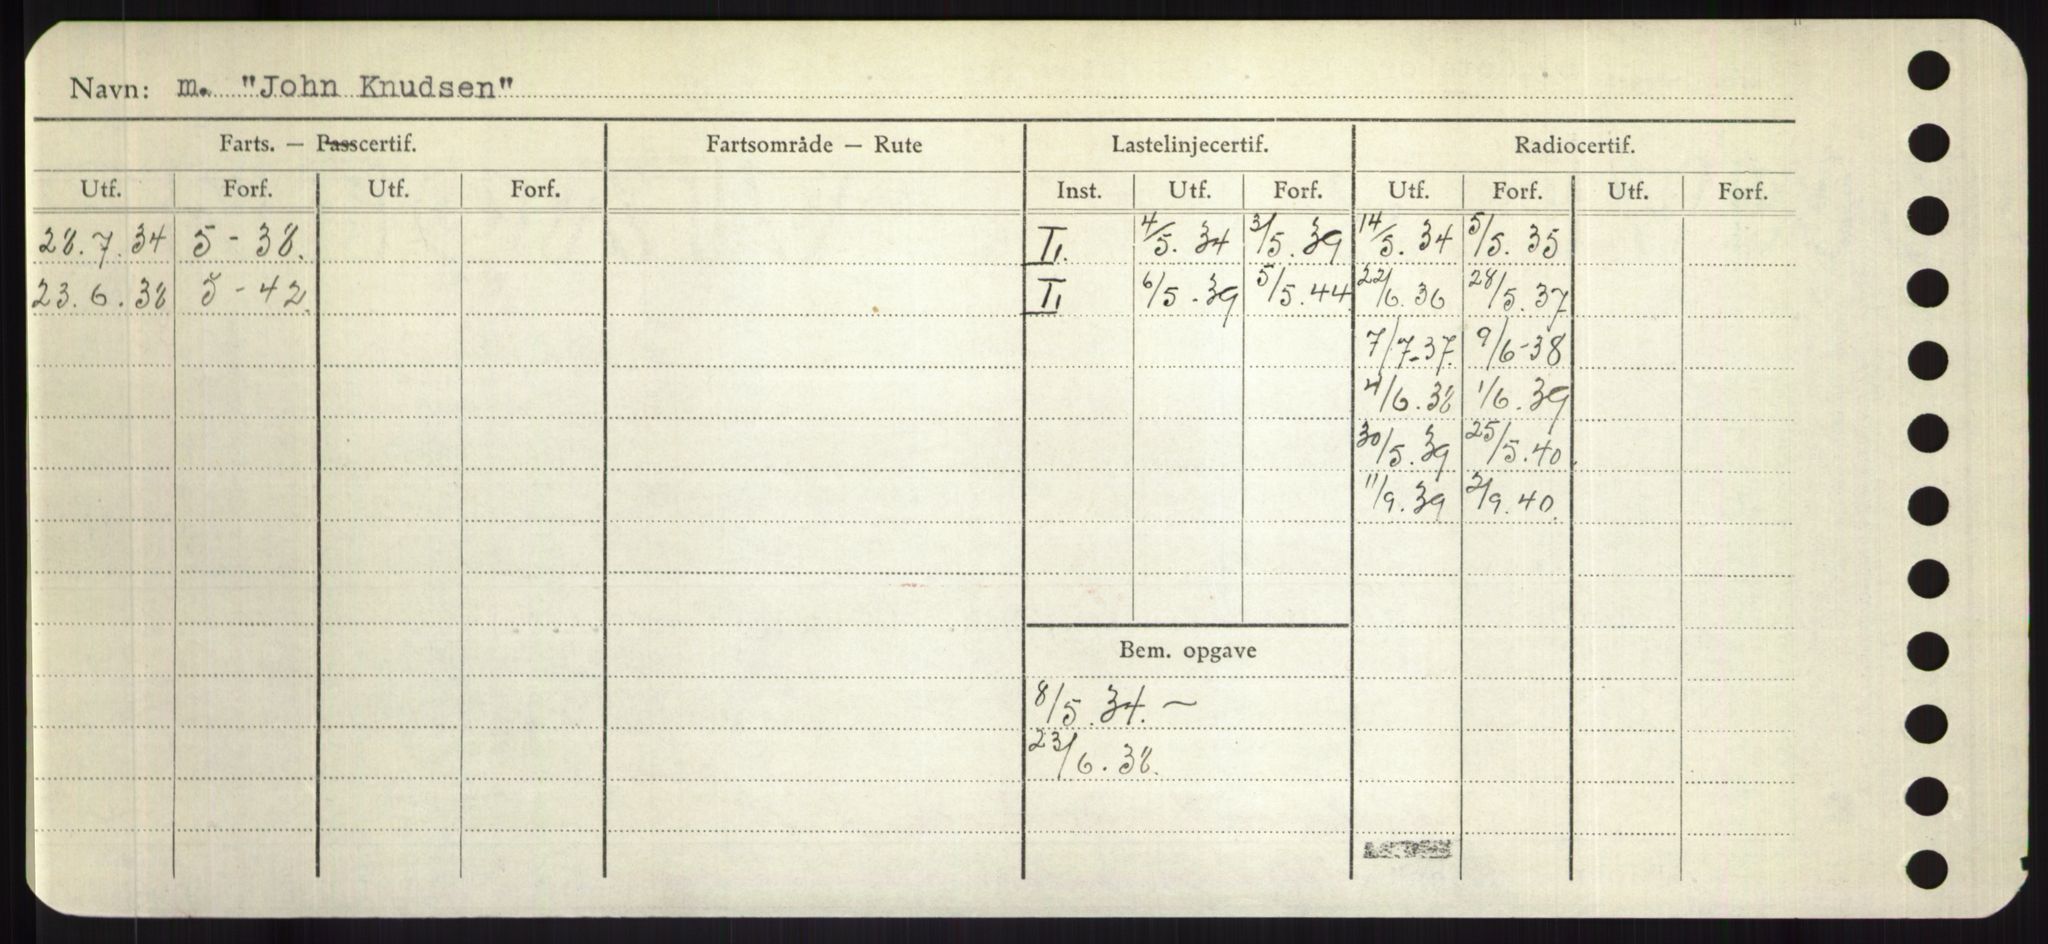 Navn: m. "John Knudsen"
Farts. — Passcertif. Fartsområde — Rute Lastelinjecertif. Radiocertif.
Utf. Forf. Utf. Forf. Inst. Utf. Forf. Utf. Forf. Utf. Forf.
28.7.34 5-38. 4/5.34 3/5.39 14/5.34 5/5.35
23.6.38 5-42. 6/5.39 5/5.44 22/6.36 28/5.37
7/7-37. 9/6-38
/6.38 1/6.39
30/5.39 25/5.40.
11/9.39 /9.40.
Bem. opgave
8/5.34. ~
23/6.38.